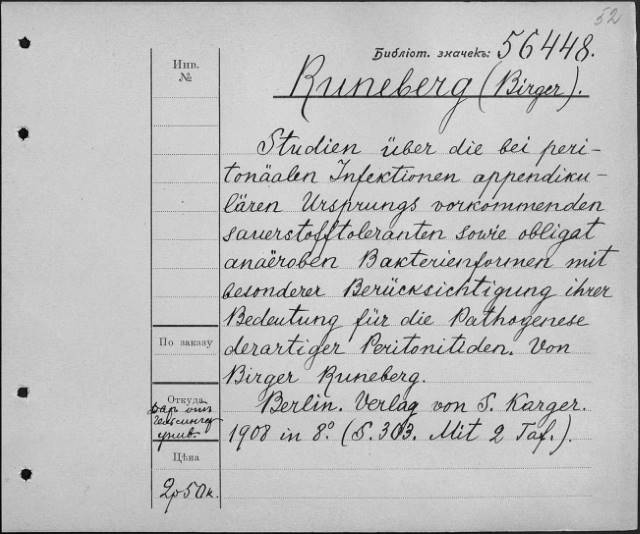 52
Библіот. значекъ: 56448.
Инв.
№
Runeberg (Birger).
Studien über die bei peri-
tonäalen Infektionen appendiku-
lären Ursprungs vorkommenden
sauerstofftoleranten sowie obligat
anaëroben Bakterienformen mit
besonderer Berücksichtigung ihrer
Bedeutung für die Pathogenese
derartiger Peritonitiden. Von
Birger Runeberg.
Berlin. Verlag von S. Karger.
1908 in 8° (S. 303. Mit 2 Taf.).
По заказу
Откуда
Даръ отъ
Гельсингф.
унив.
Цѣна
2р50к.